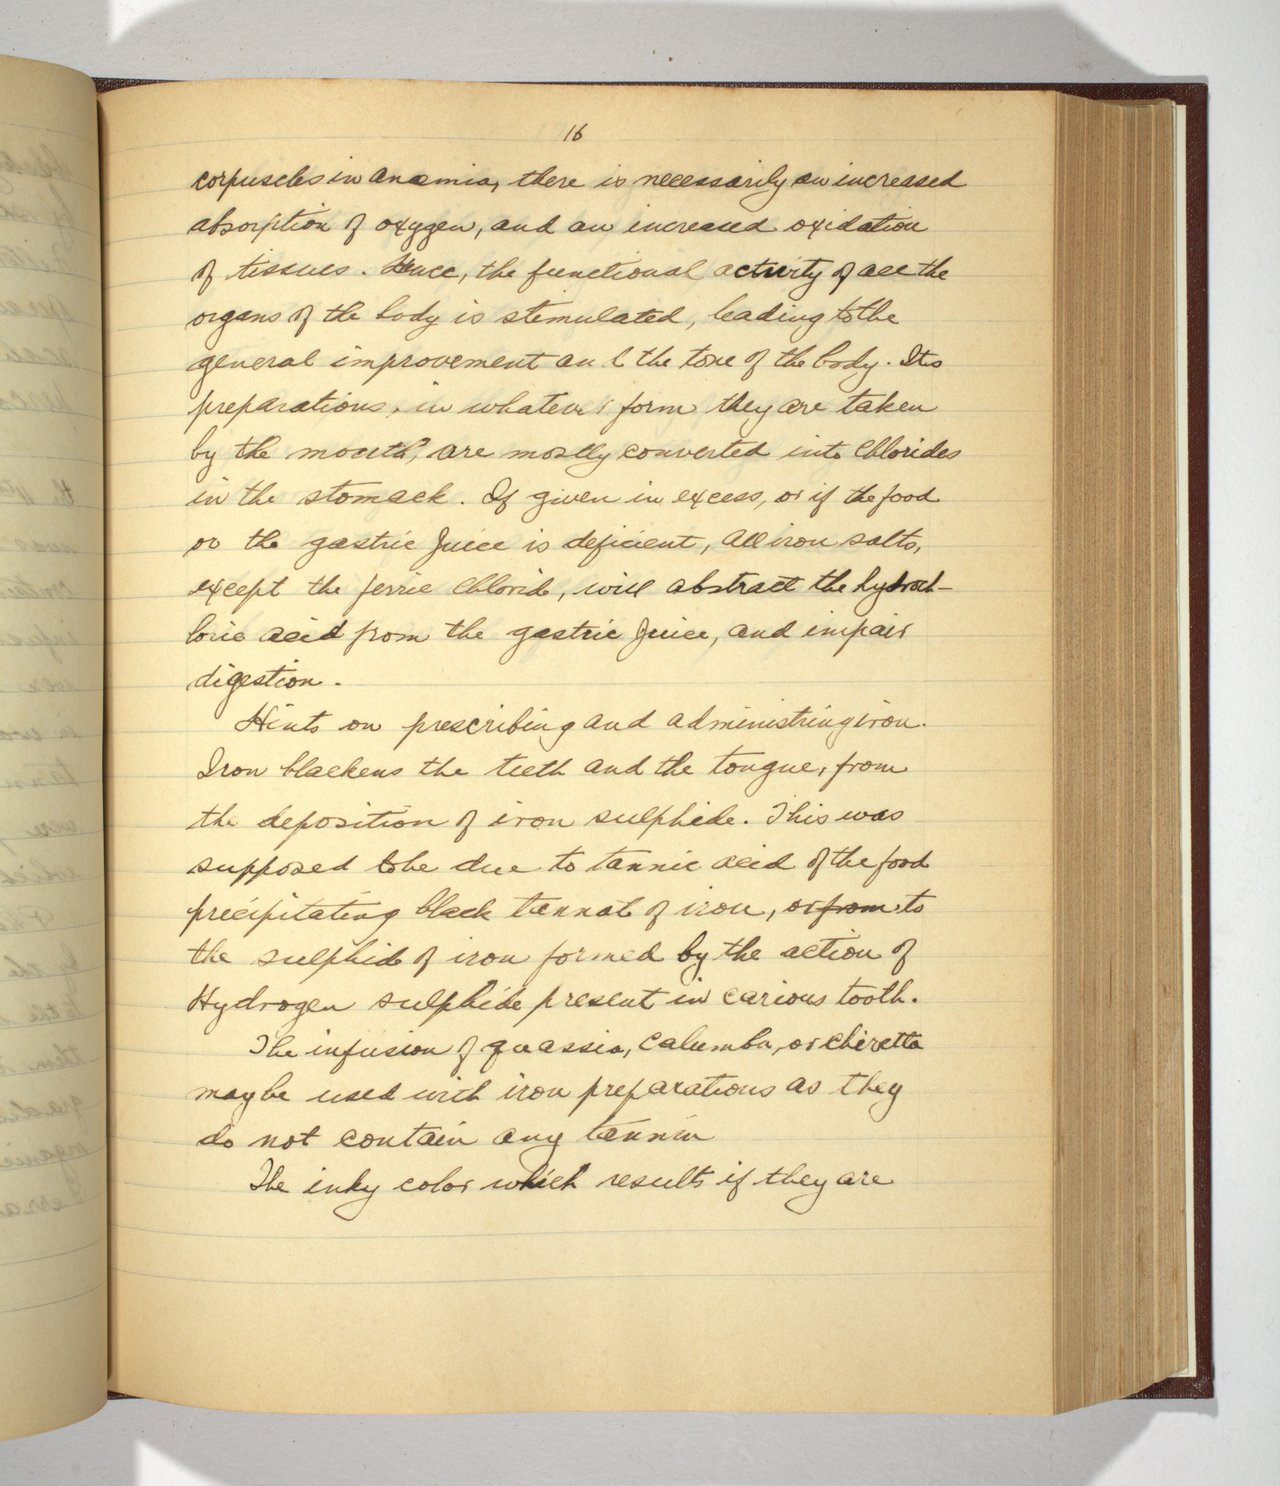 16
corpuscles in anæmia, there is necessarily an increased
absorption of oxygen, and an increased oxidation
of tissues. Hence, the functional activity of all the
organs of the body is stimulated, leading to the
general improvement and the tone of the body. Its
preparations, in whatever form they are taken
by the mouth, are mostly converted into Chlorides
in the stomach. If given in excess, or if the food
or the gastric Juice is deficient, All iron salts,
except the ferric Chlorid, will abstract the hydroch-
loric acid from the gastric Juice, and impair
digestion.
Hints on prescribing and administring iron.
Iron blackens the teeth and the tongue, from
the deposition of iron sulphide. This was
supposed to be due to tannic acid of the food
precipitating black tannat of iron, or from to
the sulphid of iron formed by the action of
Hydrogen sulphide present in carious tooth.
The infusion of quassia, Calumba, or Chiretta
may be used with iron preparations as they
do not contain any tannin
The inky color which results if they are